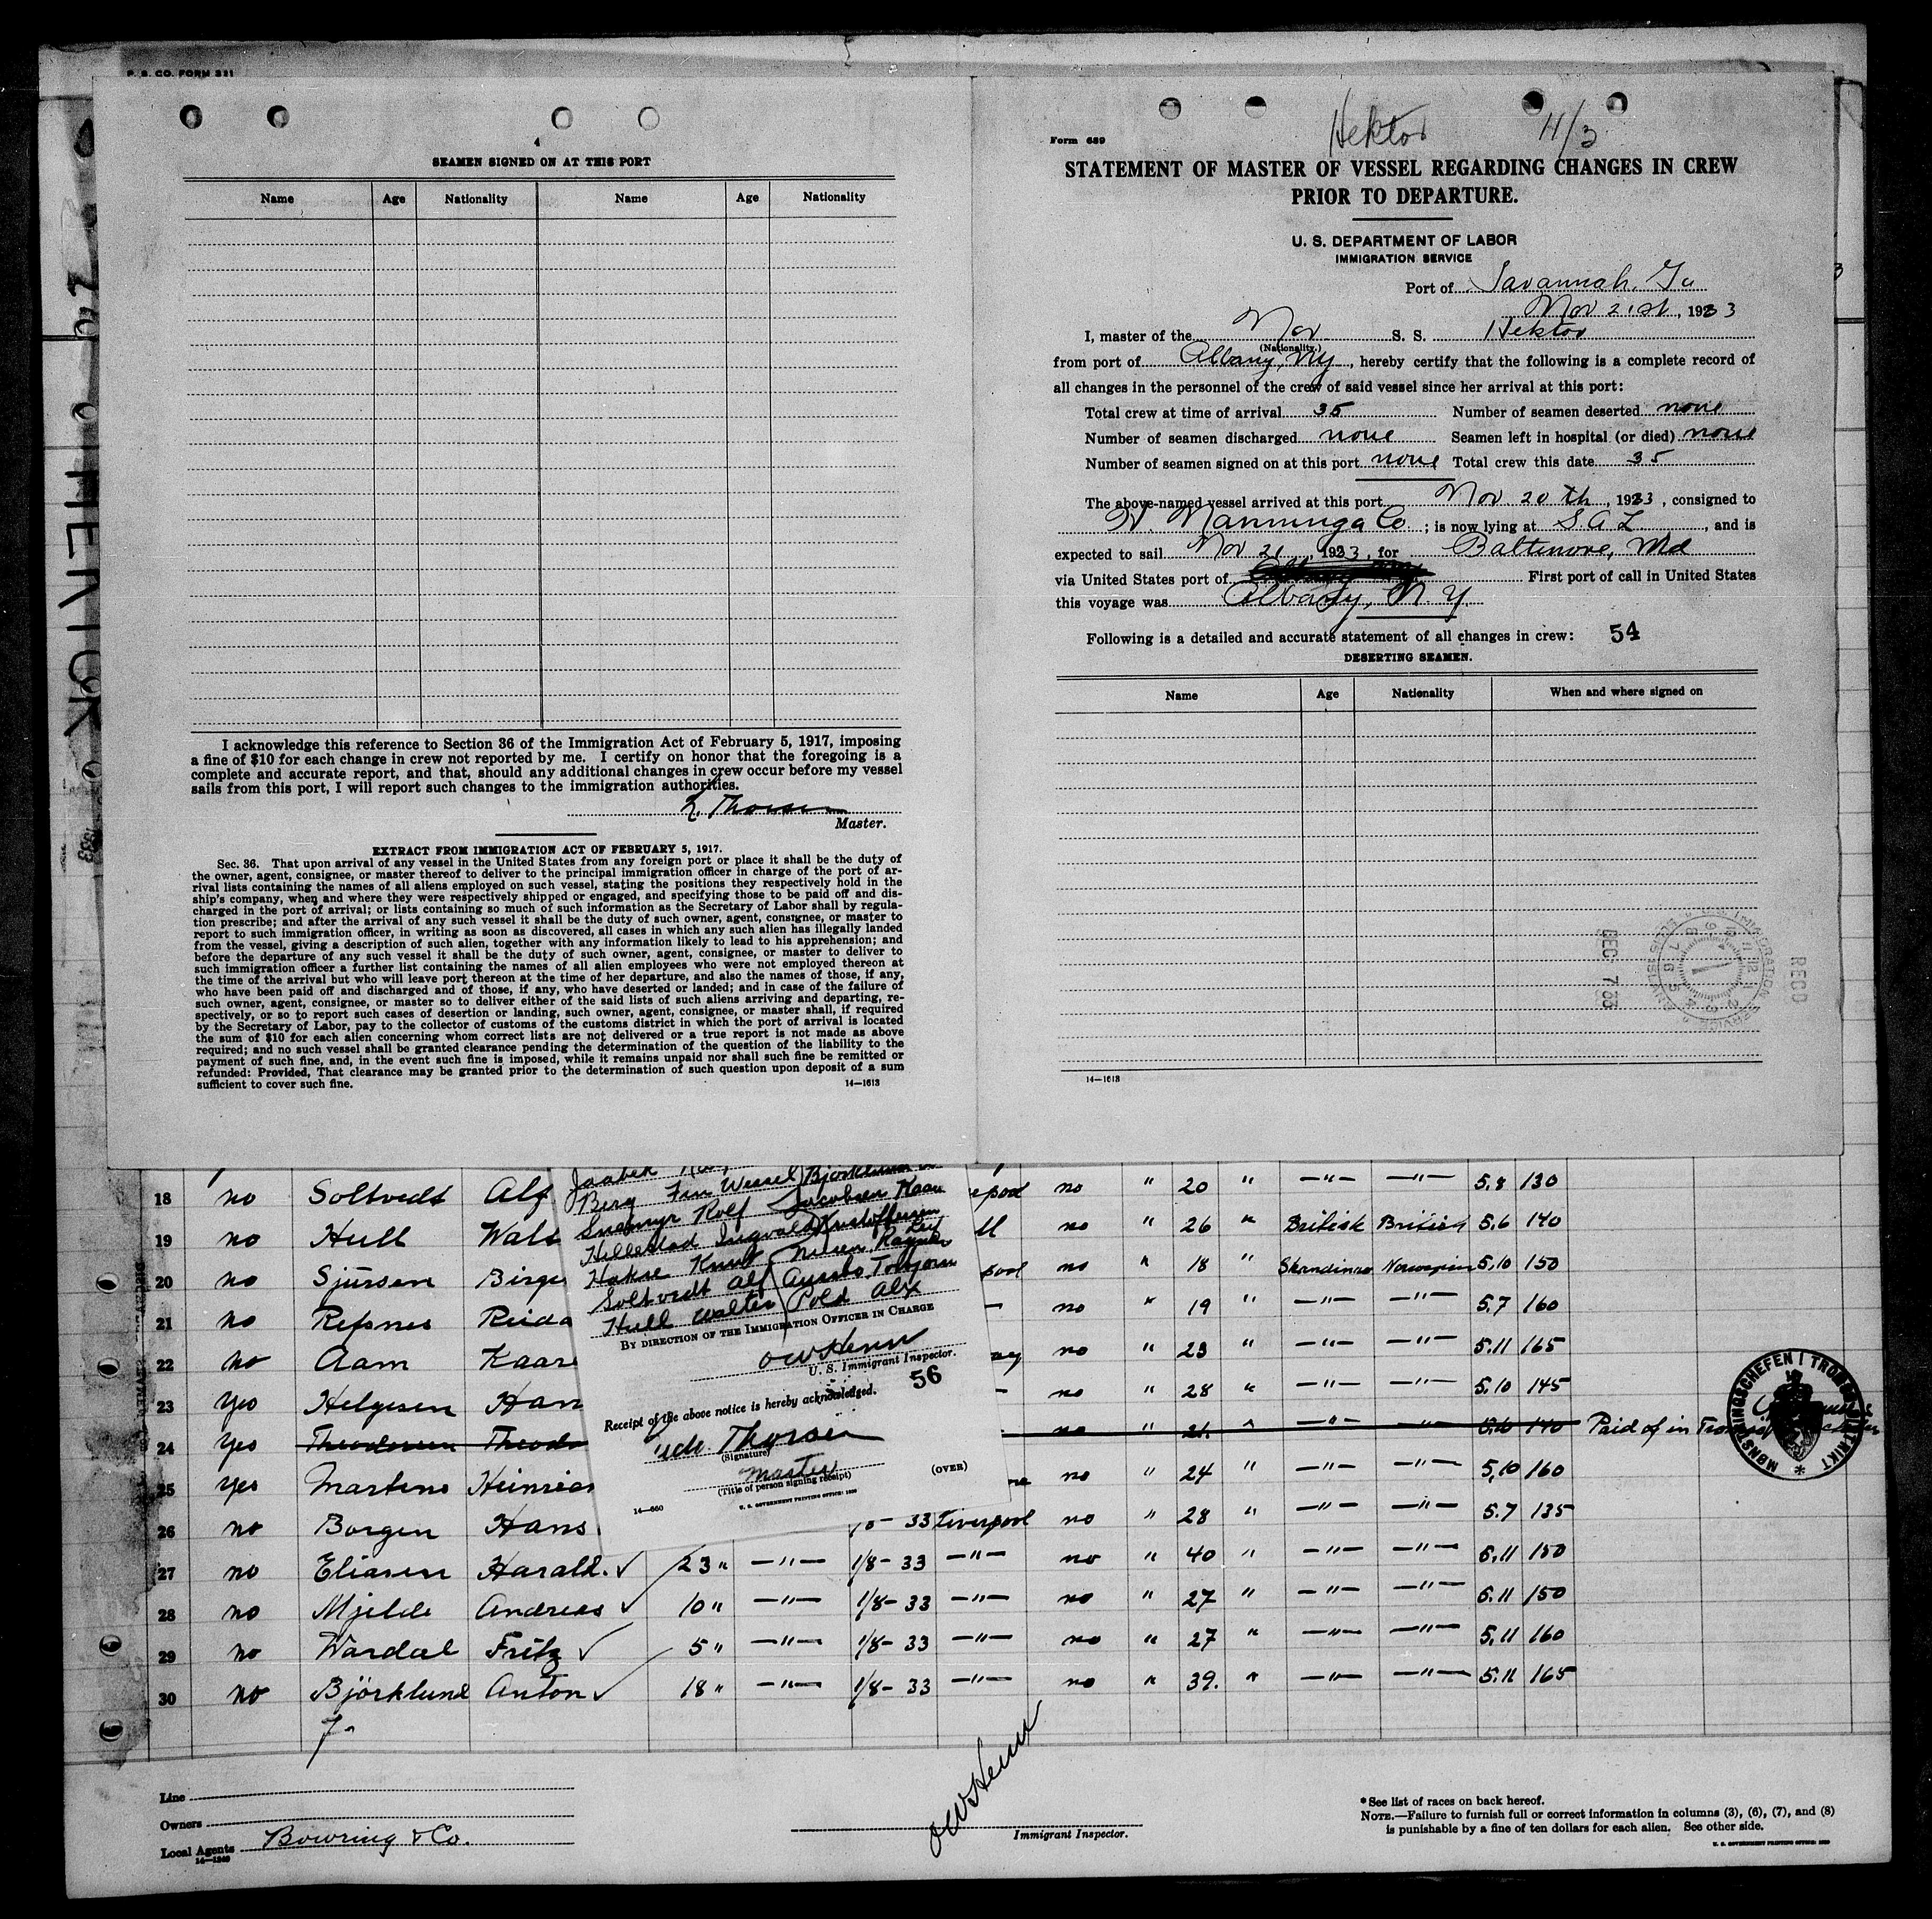 P. S. CO. FORM 321
HEKTOR
4
SEAMEN SIGNED ON AT THIS PORT
Name Age Nationality Name Age Nationality
I acknowledge this reference to Section 36 of the Immigration Act of February 5, 1917, imposing
a fine of $10 for each change in crew not reported by me. I certify on honor that the foregoing is a
complete and accurate report, and that, should any additional changes in crew occur before my vessel
sails from this port, I will report such changes to the immigration authorities.
Thorsen
Master.
EXTRACT FROM IMMIGRATION ACT OF FEBRUARY 5, 1917.
Sec. 36. That upon arrival of any vessel in the United States from any foreign port or place it shall be the duty of
the owner, agent, consignee, or master thereof to deliver to the principal immigration officer in charge of the port of ar-
rival lists containing the names of all aliens employed on such vessel, stating the positions they respectively hold in the
ship's company, when and where they were respectively shipped or engaged, and specifying those to be paid off and dis-
charged in the port of arrival; or lists containing so much of such information as the Secretary of Labor shall by regula-
tion prescribe; and after the arrival of any such vessel it shall be the duty of such owner, agent, consignee, or master to
report to such immigration officer, in writing as soon as discovered, all cases in which any such alien has illegally landed
from the vessel, giving a description of such alien, together with any information likely to lead to his apprehension; and
before the departure of any such vessel it shall be the duty of such owner, agent, consignee, or master to deliver to
such immigration officer a further list containing the names of all alien employees who were not employed thereon at
the time of the arrival but who will leave port thereon at the time of her departure, and also the names of those, if any,
who have been paid off and discharged and of those, if any, who have deserted or landed; and in case of the failure of
such owner, agent, consignee, or master so to deliver either of the said lists of such aliens arriving and departing, re-
spectively, or so to report such cases of desertion or landing, such owner, agent, consignee, or master shall, if required
by the Secretary of Labor, pay to the collector of customs of the customs district in which the port of arrival is located
the sum of $10 for each alien concerning whom correct lists are not delivered or a true report is not made as above
required; and no such vessel shall be granted clearance pending the determination of the question of the liability to the
payment of such fine, and, in the event such fine is imposed, while it remains unpaid nor shall such fine be remitted or
refunded: Provided, That clearance may be granted prior to the determination of such question upon deposit of a sum
sufficient to cover such fine.
14—1613
Hektor 11/3
Form 689
STATEMENT OF MASTER OF VESSEL REGARDING CHANGES IN CREW
PRIOR TO DEPARTURE.
U. S. DEPARTMENT OF LABOR
IMMIGRATION SERVICE
Port of Savannah, Ga
Nov 21st, 1933
I, master of the Nor S. S. Hektor
(Nationality.)
from port of Albany, NY, hereby certify that the following is a complete record of
all changes in the personnel of the crew of said vessel since her arrival at this port:
Total crew at time of arrival 35 Number of seamen deserted none
Number of seamen discharged none Seamen left in hospital (or died) none
Number of seamen signed on at this port none Total crew this date 35
The above-named vessel arrived at this port Nov. 20th, 1933, consigned to
Co; is now lying at S. A. L., and is
expected to sail Nov 21, 1933, for Baltimore, Md
via United States port of First port of call in United States
this voyage was Albany, N. Y.
Following is a detailed and accurate statement of all changes in crew: 54
DESERTING SEAMEN.
Name Age Nationality When and where signed on
DEC 7 33
RECD
14—1613
18 no Soltvedt Alf no " 20 " —"— —"— 5.8 130
19 no Hull Walt no " 26 " British British 5.6 140
20 no Sjursen Birge no " 18 " Skandinav Norwegian 5.10 150
21 no Refsnes Reida no " 19 " —"— —"— 5.7 160
22 no Aam Kaare no " 23 " —"— —"— 5.11 165
23 Yes Helgesen Han no " 28 " —"— —"— 5.10 145
24 Yes no " 21. " —"— —"— 5.6 140 Paid of in
25 Yes Martens Heinric no " 24 " —"— —"— 5.10 160
26 no Borgen Hans 33 Liverpool no " 28 " —"— —"— 5.7 135
27 no Eliasen Harald. 23 " —"— 1/8-33 —"— no " 40 " —"— —"— 5.11 150
28 no Mjelde Andreas 10 " —"— 1/8-33 —"— no " 27 " —"— —"— 5.11 150
29 no Wardal Fritz 5 " —"— 1/8-33 —"— no " 27 " —"— —"— 5.11 160
30 no Björklund Anton 18 " —"— 1/8-33 —"— no " 39. " —"— —"— 5.11 165
Berg Finn Wessel Bjorklund
Rolf Jacobsen Kaare
Hillestad Ingvald Kristoffersen
Leif
Knut
Soltvedt Alf Torbjorn
Hull Walter Pold Alx
BY DIRECTION OF THE IMMIGRATION OFFICER IN CHARGE
OW Henn
U. S. Immigrant Inspector.
56
Receipt of the above notice is hereby acknowledged.
Thorsen
(Signature)
Master
(Title of person signing receipt)
(OVER)
14—660
U. S. GOVERNMENT PRINTING OFFICE: 1930
MØNSTRINGSCHEFEN I TROMSØ DISTRIKT
Line
Owners
Local Agents Bowring & Co.
14—1240
OW Henn
Immigrant Inspector.
*See list of races on back hereof.
NOTE.—Failure to furnish full or correct information in columns (3), (6), (7), and (8)
is punishable by a fine of ten dollars for each alien. See other side.
U. S. GOVERNMENT PRINTING OFFICE: 1930